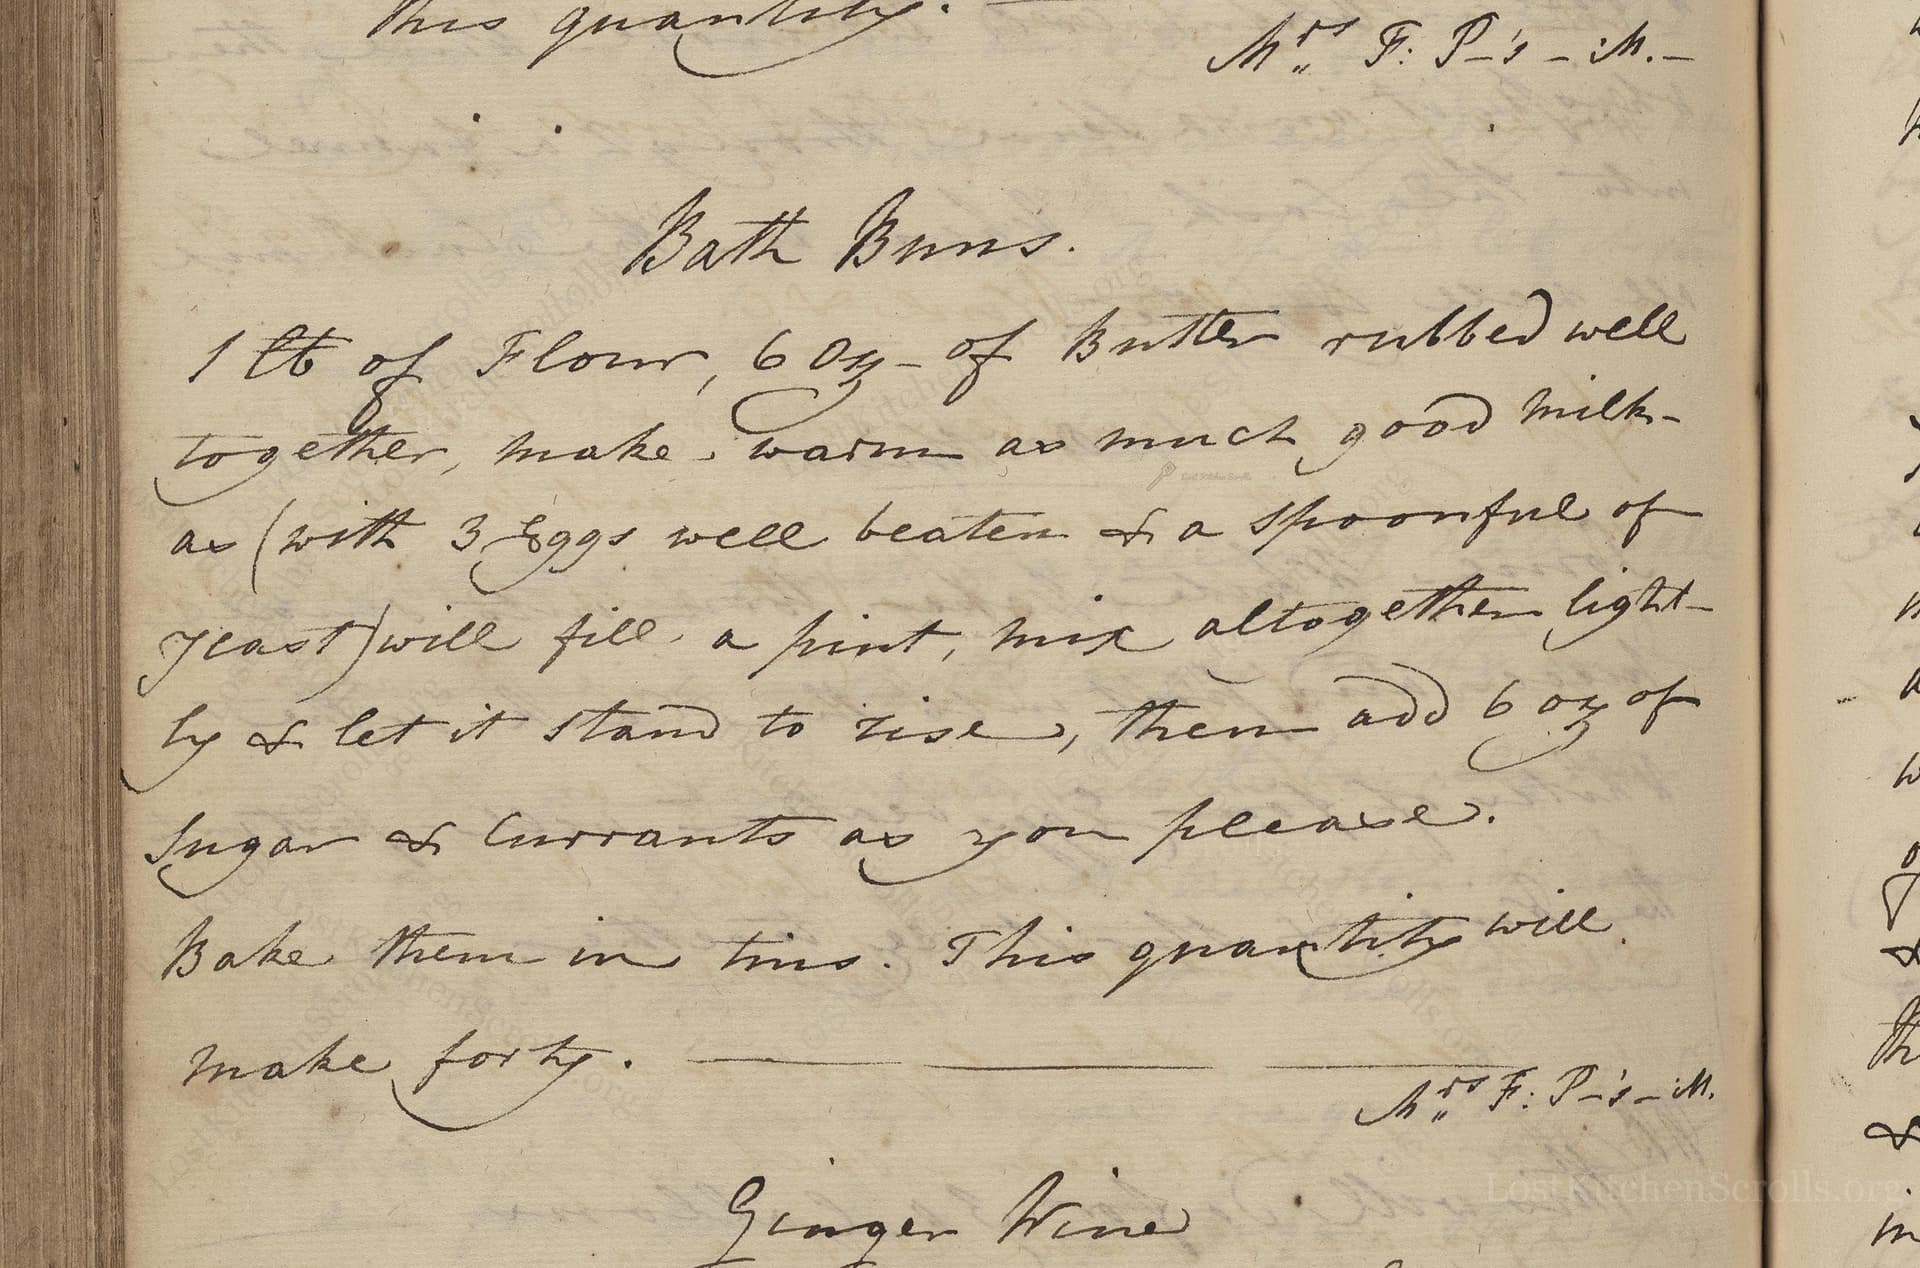 this quantity. —
Mrs F: P-'s - M. -
Bath Buns.
1 lb of Flour, 6 Oz - of Butter rubbed well
together, make warm as much good milk -
as (with 3 Eggs well beaten & a spoonful of
yeast) will fill a pint, mix altogether light-
ly & let it stand to rise, then add 6 oz of
Sugar & Currants as you please.
Bake them in tins. This quantity will
make forty. ———
Mrs F: P-'s - M.
Ginger Wine
LostKitchenScrolls.org